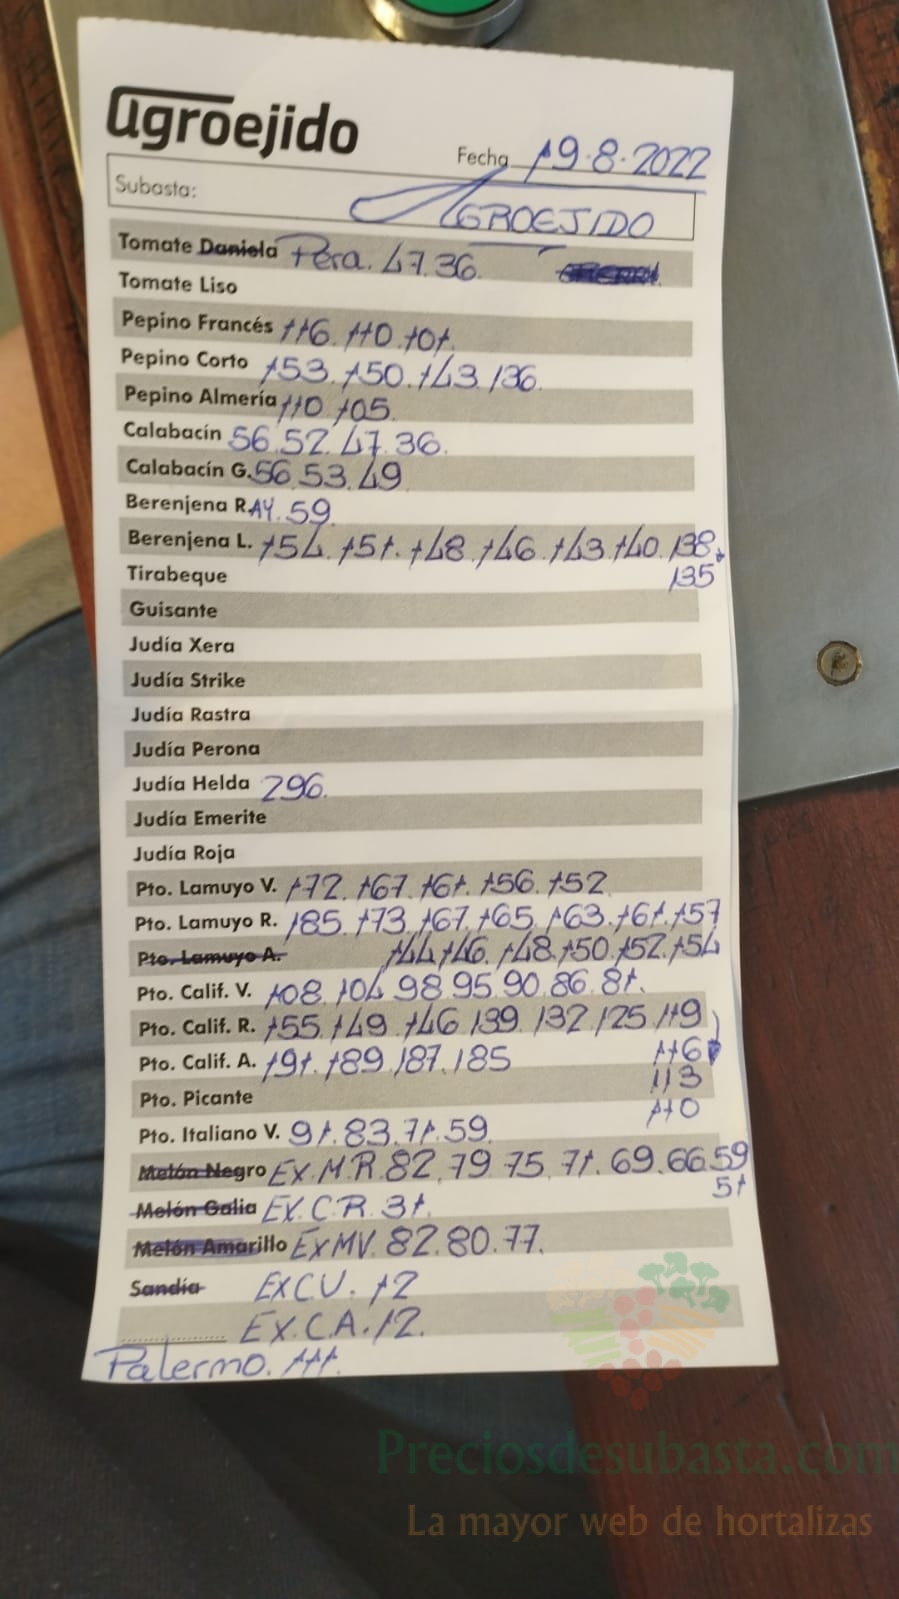 agroejido
Fecha 19·8·2022
Subasta: AGROEJIDO
Tomate Daniela Pera. 47.36.
Tomate Liso
Pepino Francés 116. 110. 101.
Pepino Corto 153. 150. 143. 136.
Pepino Almería 110 105.
Calabacín 56.52. 47.36.
Calabacín G. 56.53.49
Berenjena R. AY. 59.
Berenjena L. 154. 151. 148. 146. 143. 140. 138.
Tirabeque 135
Guisante
Judía Xera
Judía Strike
Judía Rastra
Judía Perona
Judía Helda 296.
Judía Emerite
Judía Roja
Pto. Lamuyo V. 172. 167. 161. 156. 152
Pto. Lamuyo R. 185. 173. 167. 165. 163. 161. 157
Pto. Lamuyo A. 144 146. 148. 150. 152. 154
Pto. Calif. V. 108. 104 98 95.90.86.81.
Pto. Calif. R. 155. 149. 146 139. 132 125. 119
Pto. Calif. A. 191. 189. 187. 185 116
Pto. Picante 113
110
Pto. Italiano V. 91. 83. 71. 59.
Melón Negro EX. M.R. 82. 79. 75. 71. 69. 66. 59
51
Melón Galia EX. C.R. 31.
Melón Amarillo EX MV. 82. 80. 77.
Sandía EX CU. 12
EX. C.A. 12.
Palermo. 111.
Preciosdesubasta.com
La mayor web de hortalizas